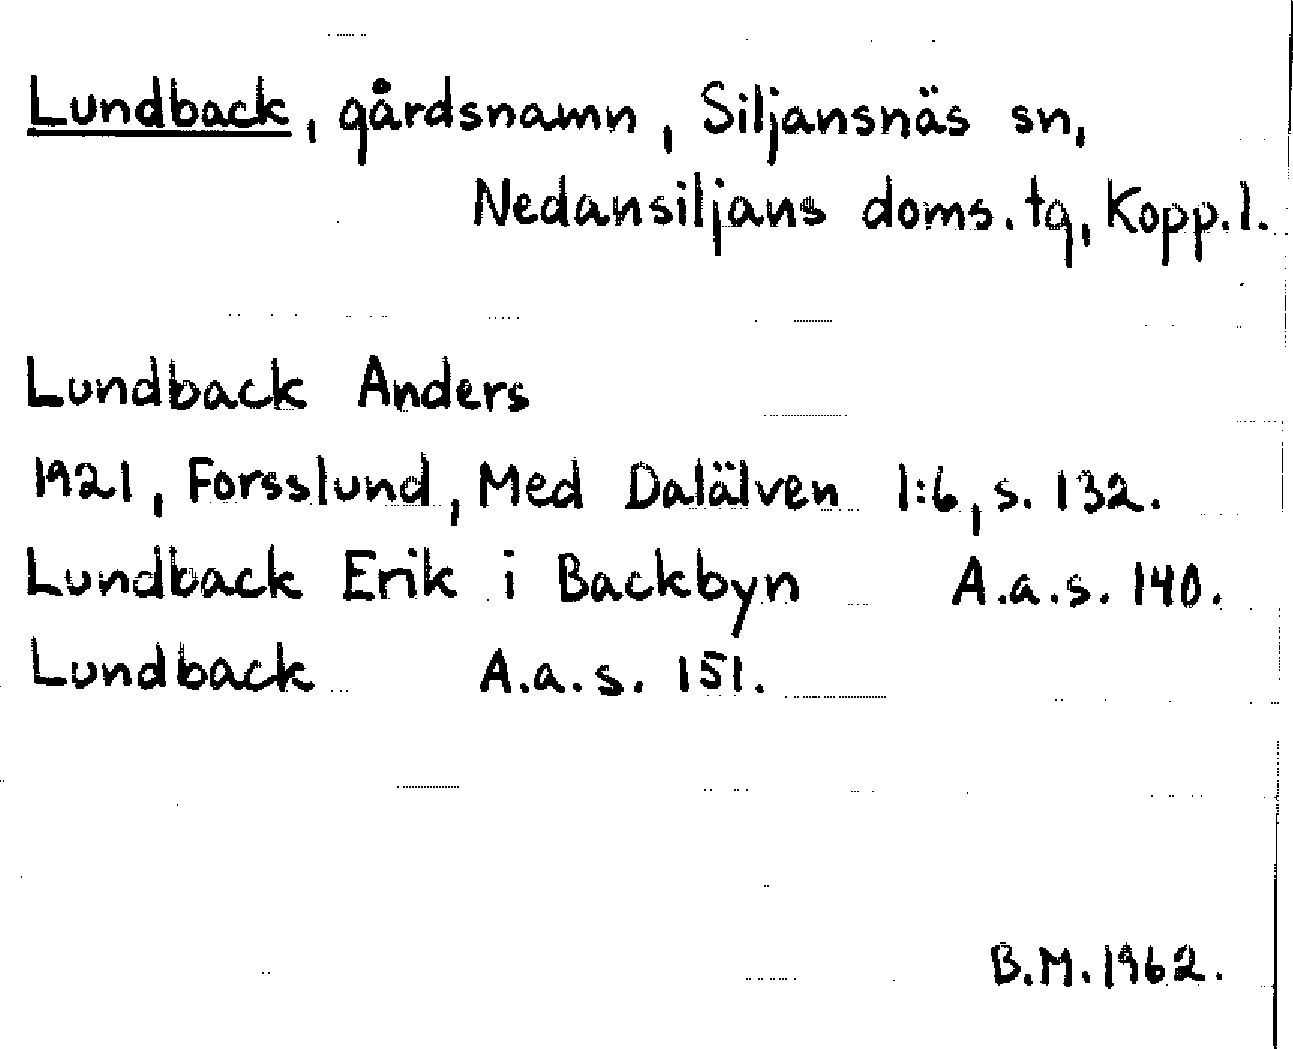 Lundback, gårdsnamn, Siljansnäs sn,
Nedansiljans doms.tg, Kopp.l.
Lundback Anders
1921, Forsslund, Med Dalälven 1:6, s. 132.
Lundback Erik i Backbyn A.a.s. 140.
Lundback A.a.s. 151.
B.M. 1962.